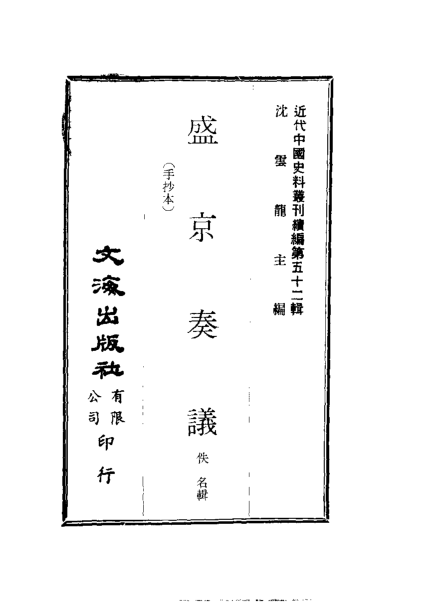 近代中國史料叢刊續編第五十二輯
沈雲龍主編
盛京奏議
（手抄本）
佚名輯
文海出版社
有限公司
印行